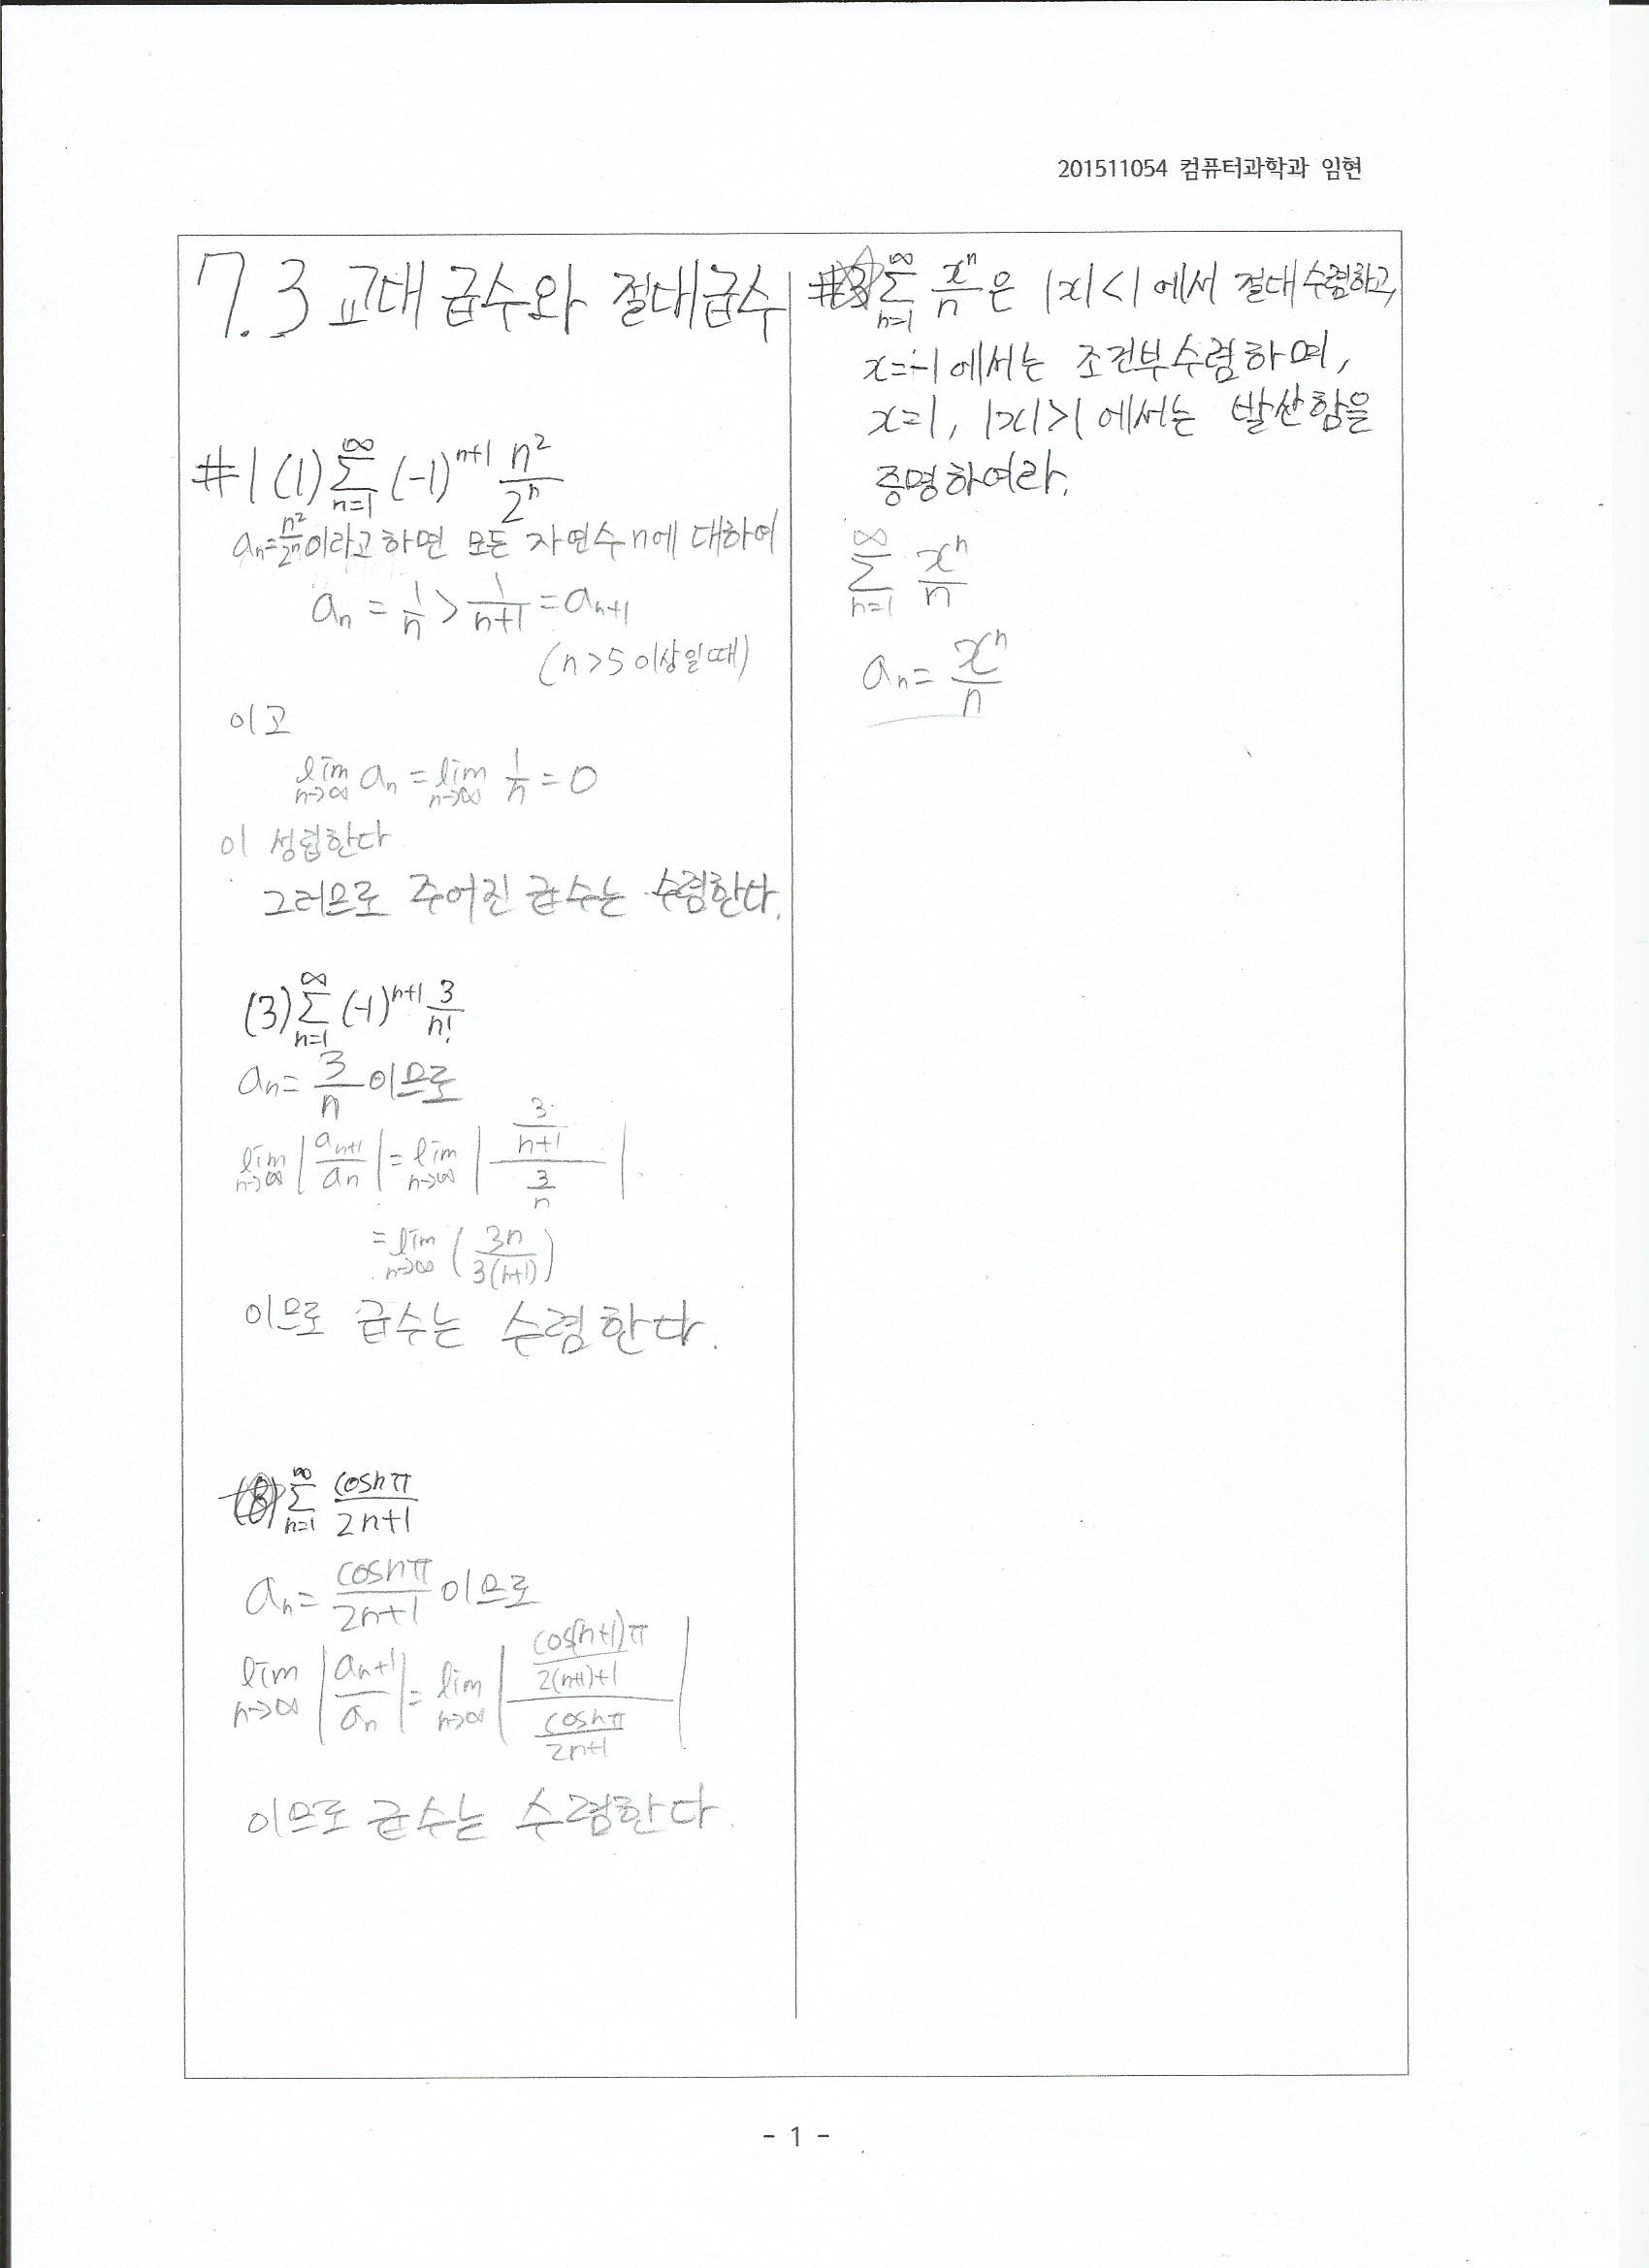 201511054 컴퓨터과학과 임현
7.3 교대급수와 절대급수
#1 (1) ∑_{n=1}^{∞} (-1)^{n+1} n²/2ⁿ
aₙ = n²/2ⁿ 이라고 하면 모든 자연수 n에 대하여
aₙ = 1/n > 1/(n+1) = aₙ₊₁
(n>5 이상일 때)
이고
lim_{n→∞} aₙ = lim_{n→∞} 1/n = 0
이 성립한다
그러므로 주어진 급수는 수렴한다.
(3) ∑_{n=1}^{∞} (-1)^{n+1} 3/n!
aₙ = 3/n 이므로
lim_{n→∞} |aₙ₊₁/aₙ| = lim_{n→∞} |(3/(n+1))/(3/n)|
= lim_{n→∞} (3n/(3(n+1)))
이므로 급수는 수렴한다.
(8) ∑_{n=1}^{∞} cosnπ/(2n+1)
aₙ = cosnπ/(2n+1) 이므로
lim_{n→∞} |aₙ₊₁/aₙ| = lim_{n→∞} |(cos(n+1)π/(2(n+1)+1))/(cosnπ/(2n+1))|
이므로 급수는 수렴한다.
#3 ∑_{n=1}^{∞} xⁿ/n 은 |x|<1 에서 절대수렴하고,
x=-1 에서는 조건부수렴하며,
x=1, |x|>1 에서는 발산함을
증명하여라.
∑_{n=1}^{∞} xⁿ/n
aₙ = xⁿ/n
- 1 -